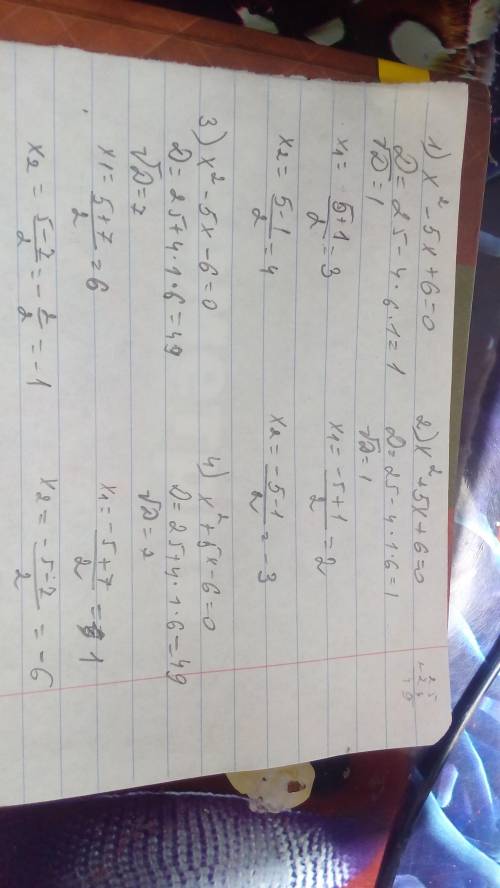 1) x² - 5x + 6 = 0
D = 25 - 4 · 6 · 1 = 1
√D = 1
x₁ = 5+1/2 = 3
x₂ = 5-1/2 = 4
2) x² + 5x + 6 = 0
D = 25 - 4 · 1 · 6 = 1
√D = 1
x₁ = -5+1/2 = -2
x₂ = -5-1/2 = -3
3) x² - 5x - 6 = 0
D = 25 + 4 · 1 · 6 = 49
√D = 7
x₁ = 5+7/2 = 6
x₂ = 5-7/2 = -2/2 = -1
4) x² + 5x - 6 = 0
D = 25 + 4 · 1 · 6 = 49
√D = 7
x₁ = -5+7/2 = 1
x₂ = -5-7/2 = -6
25
24
49